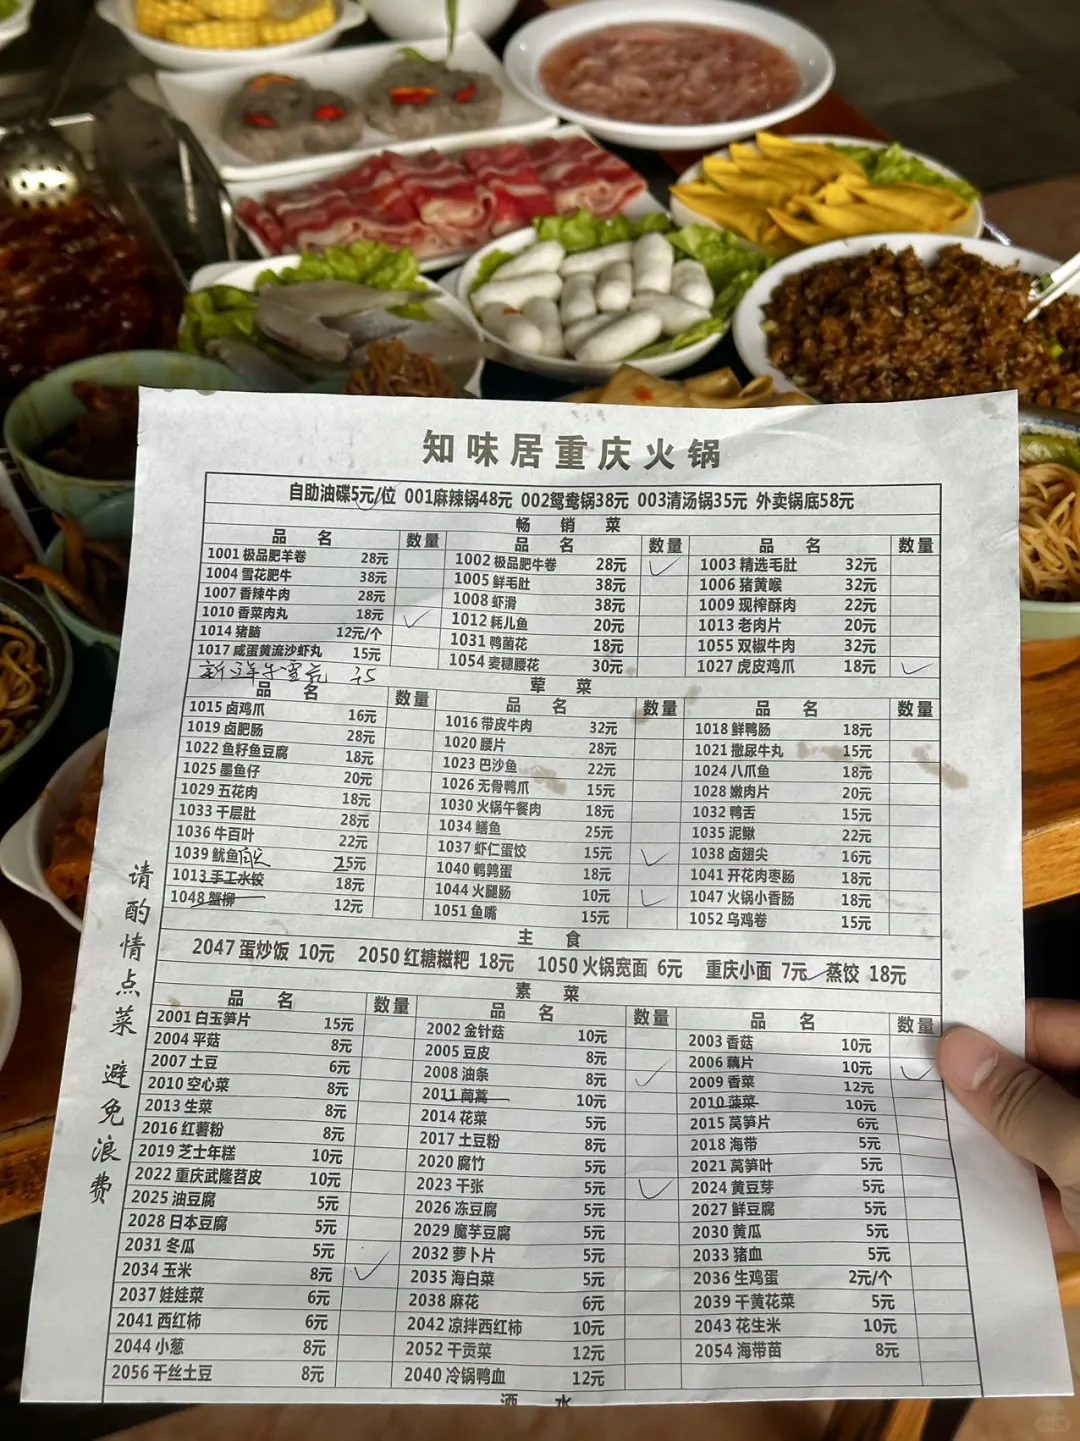 知味居重庆火锅
自助油碟5元/位 001麻辣锅48元 002鸳鸯锅38元 003清汤锅35元 外卖锅底58元
畅 销 菜
品 名 数量 品 名 数量 品 名 数量
1001 极品肥羊卷 28元 1002 极品肥牛卷 28元 1003 精选毛肚 32元
1004 雪花肥牛 38元 1005 鲜毛肚 38元 1006 猪黄喉 32元
1007 香辣牛肉 28元 1008 虾滑 38元 1009 现榨酥肉 22元
1010 香菜肉丸 18元 1012 耗儿鱼 20元 1013 老肉片 20元
1014 猪脑 12元/个 1031 鸭菌花 18元 1055 双椒牛肉 32元
1017 咸蛋黄流沙虾丸 15元 1054 麦穗腰花 30元 1027 虎皮鸡爪 18元
荤 菜
品 名 数量 品 名 数量 品 名 数量
1015 卤鸡爪 16元 1016 带皮牛肉 32元 1018 鲜鸭肠 18元
1019 卤肥肠 28元 1020 腰片 28元 1021 撒尿牛丸 15元
1022 鱼籽鱼豆腐 18元 1023 巴沙鱼 22元 1024 八爪鱼 18元
1025 墨鱼仔 20元 1026 无骨鸭爪 15元 1028 嫩肉片 20元
1029 五花肉 18元 1030 火锅午餐肉 18元 1032 鸭舌 15元
1033 千层肚 28元 1034 鳝鱼 25元 1035 泥鳅 22元
1036 牛百叶 22元 1037 虾仁蛋饺 15元 1038 卤翅尖 16元
1039 鱿鱼 15元 1040 鹌鹑蛋 18元 1041 开花肉枣肠 18元
1013 手工水饺 18元 1044 火腿肠 10元 1047 火锅小香肠 18元
1048 蟹柳 12元 1051 鱼嘴 15元 1052 乌鸡卷 15元
主 食
2047 蛋炒饭 10元 2050 红糖糍粑 18元 1050 火锅宽面 6元 重庆小面 7元 蒸饺 18元
素 菜
品 名 数量 品 名 数量 品 名 数量
2001 白玉笋片 15元 2002 金针菇 10元 2003 香菇 10元
2004 平菇 8元 2005 豆皮 8元 2006 藕片 10元
2007 土豆 6元 2008 油条 8元 2009 香菜 12元
2010 空心菜 8元 2011 茼蒿 10元 2010 菠菜 10元
2013 生菜 8元 2014 花菜 5元 2015 莴笋片 6元
2016 红薯粉 8元 2017 土豆粉 8元 2018 海带 5元
2019 芝士年糕 10元 2020 腐竹 5元 2021 莴笋叶 5元
2022 重庆武隆苕皮 10元 2023 千张 5元 2024 黄豆芽 5元
2025 油豆腐 5元 2026 冻豆腐 5元 2027 鲜豆腐 5元
2028 日本豆腐 5元 2029 魔芋豆腐 5元 2030 黄瓜 5元
2031 冬瓜 5元 2032 萝卜片 5元 2033 猪血 5元
2034 玉米 8元 2035 海白菜 5元 2036 生鸡蛋 2元/个
2037 娃娃菜 6元 2038 麻花 6元 2039 干黄花菜 5元
2041 西红柿 6元 2042 凉拌西红柿 10元 2043 花生米 10元
2044 小葱 8元 2052 干贡菜 12元 2054 海带苗 8元
2056 干丝土豆 8元 2040 冷锅鸭血 12元
酒 水
请酌情点菜 避免浪费